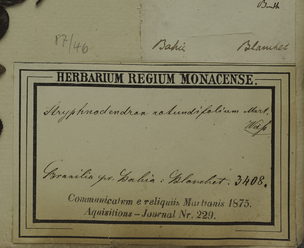 Benth
87/46
Bahia Blanchet
HERBARIUM REGIUM MONACENSE.
Stryphnodendron rotundifolium Mart.
Brasilia pr. Bahia: Blanchet. 3408.
Communicatum e reliquiis Martianis 1875.
Aquisitions - Journal Nr. 229.